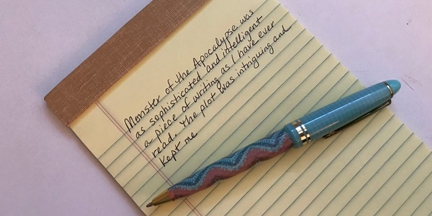 Monster of the Apocalypse was
as sophisticated and intelligent
a piece of writing as I have ever
read. The plot was intriguing and
kept me